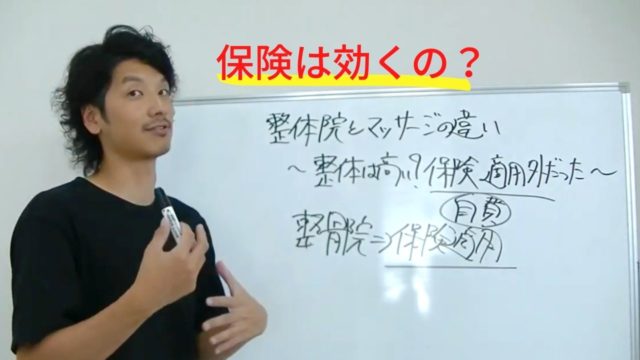 保険は効くの？
整体院とマッサージの違い
〜整体は高い？保険適用外だった〜
自費
整骨院⇒保険適外